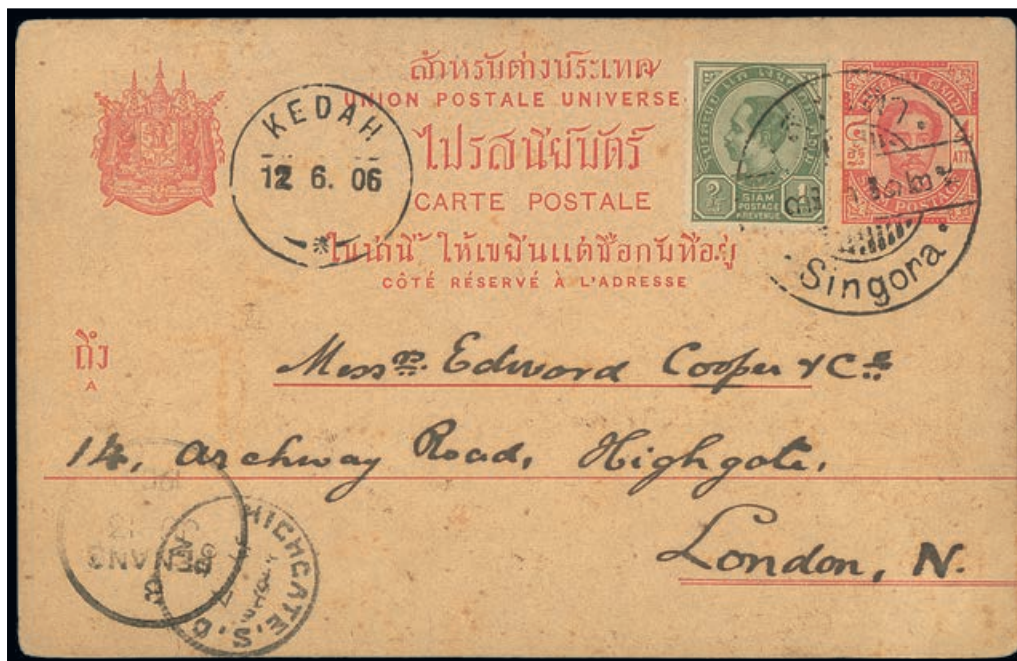 สำหรับต่างประเทศ
UNION POSTALE UNIVERSE
ไปรสนียบัตร์
CARTE POSTALE
ในน่านี้ ให้เขียนแต่ชื่อกับที่อยู่
CÔTÉ RÉSERVÉ À L'ADRESSE
KEDAH
12 6. 06
SIAM
POSTAGE
& REVENUE
ATT
Singora
ถึง
A
Messrs. Edward Cooper & Co.
14, Archway Road, Highgate,
London, N.
PENANG
HIGHGATE. S. O